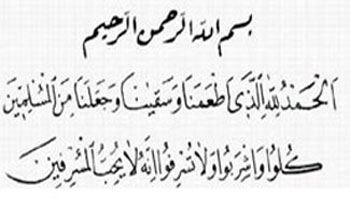 بسم الله الرحمن الرحيم
اَلْحَمْدُ لِلّٰهِ الَّذٖى اَطْعَمَنَا وَسَقٰينَا وَجَعَلَنَا مِنَ الْمُسْلِمٖينَ
كُلُوا وَاشْرَبُوا وَلَا تُسْرِفُوا اِنَّهُ لَا يُحِبُّ الْمُسْرِفٖينَ